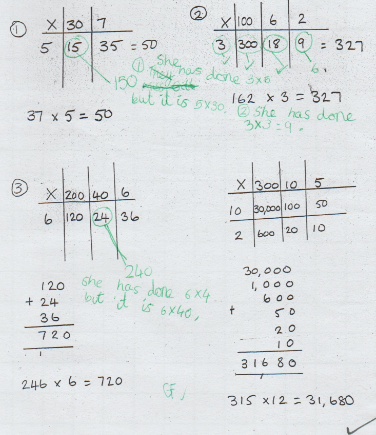 ① X 30 7
5 15 35 = 50
150 ① She has done 3x5
but it is 5x30.
37 x 5 = 50
② X 100 6 2
3 300 18 9 = 327
6.
162 x 3 = 327
② She has done
3x3=9.
③ X 200 40 6
6 120 24 36
240
she has done 6x4
but it is 6x40.
120
+ 24
36
720
1
246 x 6 = 720
GF,
X 300 10 5
10 30,000 100 50
2 600 20 10
30,000
1,000
600
+ 50
20
10
31680
1
315 x12 = 31,680